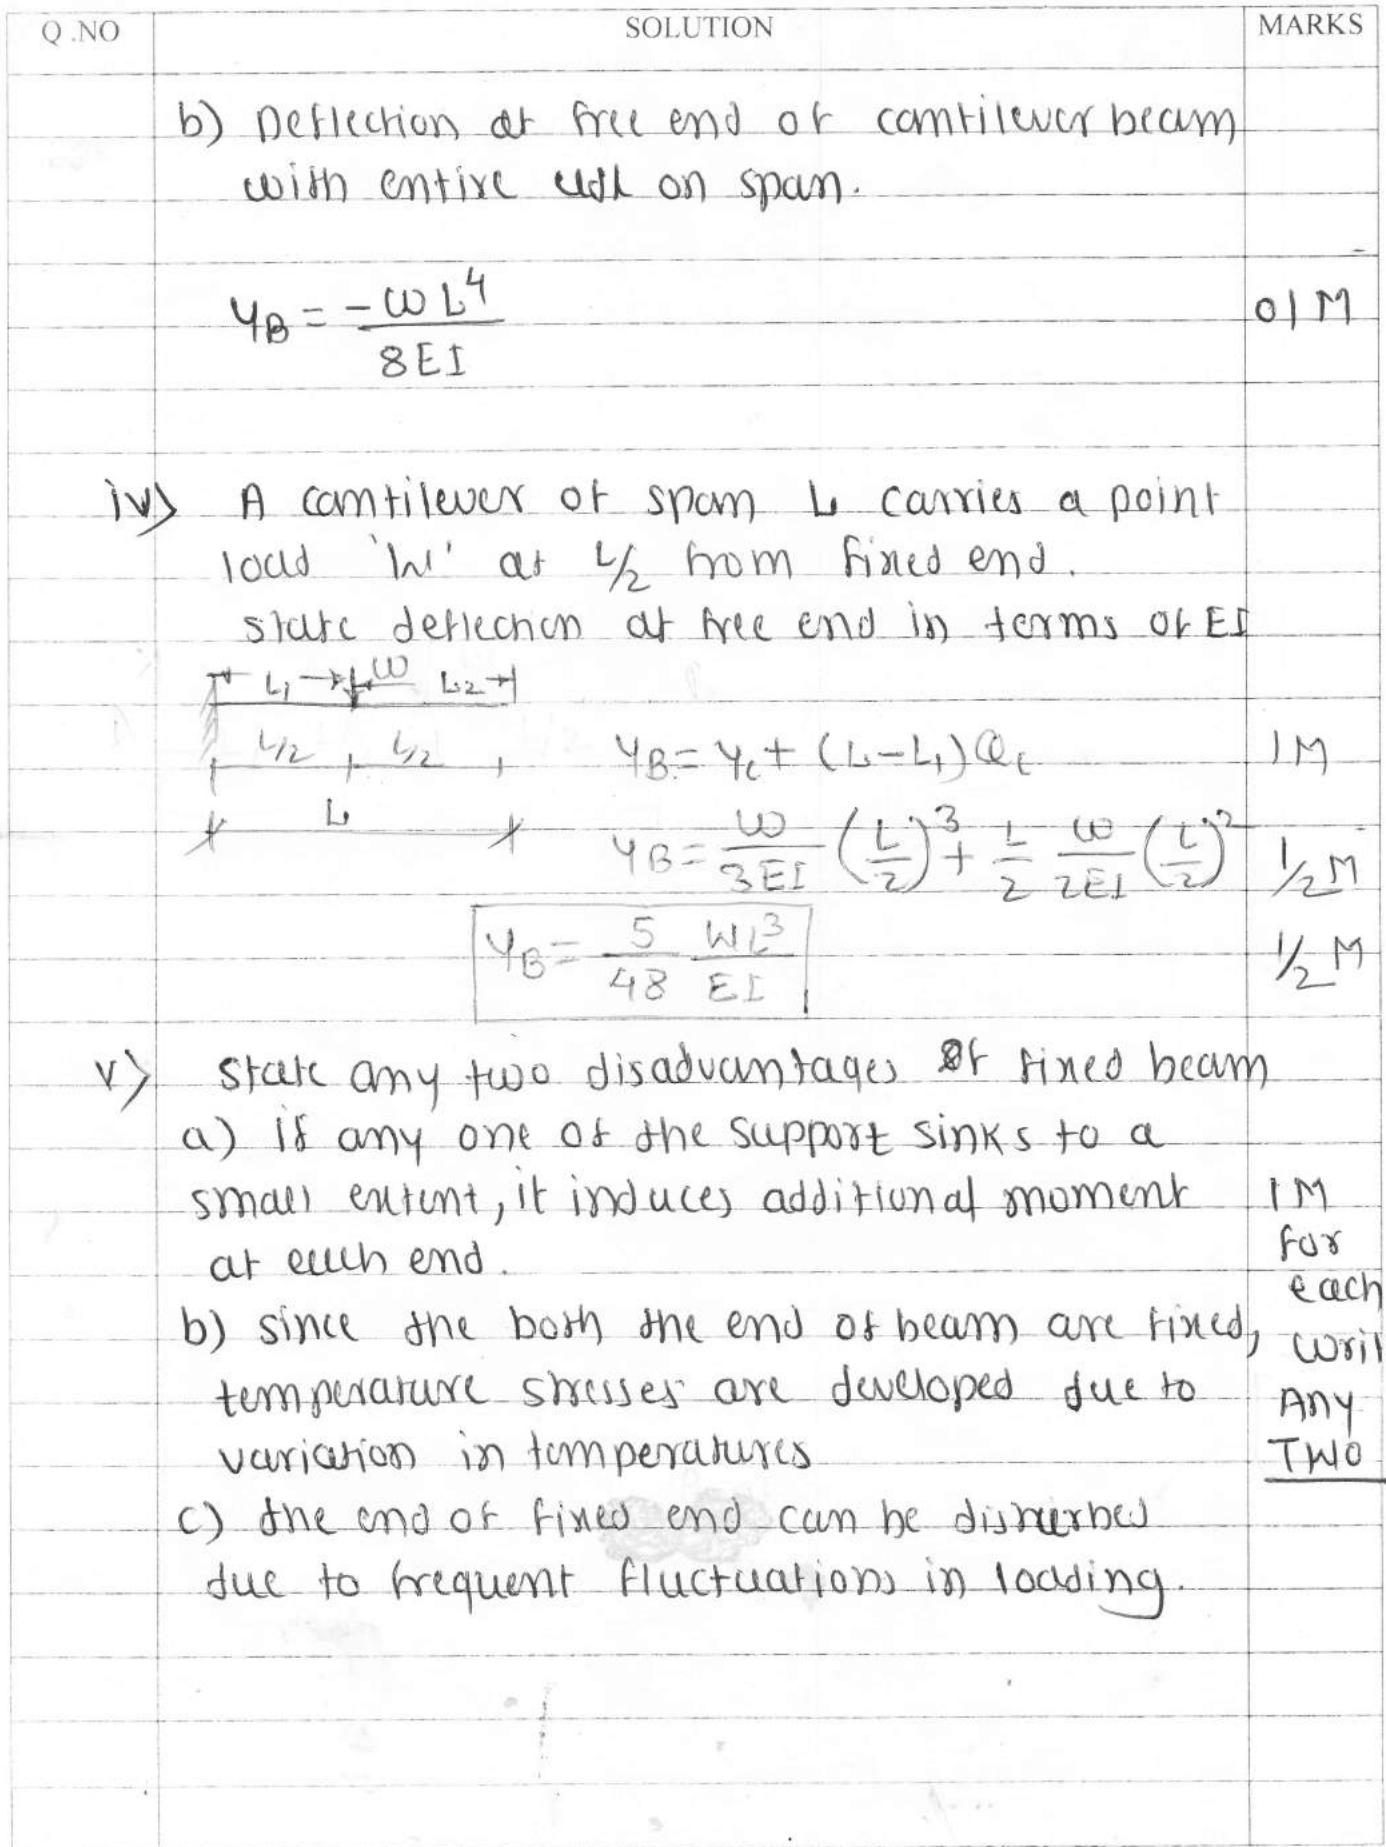 Q.NO SOLUTION MARKS
b) Deflection at free end of cantilever beam
with entire udl on span.
y_B = -ωL^4 / 8EI 01 M
iv) A cantilever of span L carries a point
load 'W' at L/2 from fixed end.
state deflection at free end in terms of EI
L1 ω L2
L/2 L/2
L
y_B = y_c + (L-L1)Q_c 1M
y_B = ω/3EI (L/2)^3 + L/2 ω/2EI (L/2)^2 1/2 M
y_B = 5/48 WL^3/EI 1/2 M
v) state any two disadvantages of fixed beam
a) if any one of the support sinks to a
small extent, it induces additional moment 1M
at each end. for
each
b) since the both the end of beam are fixed, writ
temperature stresses are developed due to Any
variation in temperatures TWO
c) the end of fixed end can be disturbed
due to frequent fluctuations in loading.